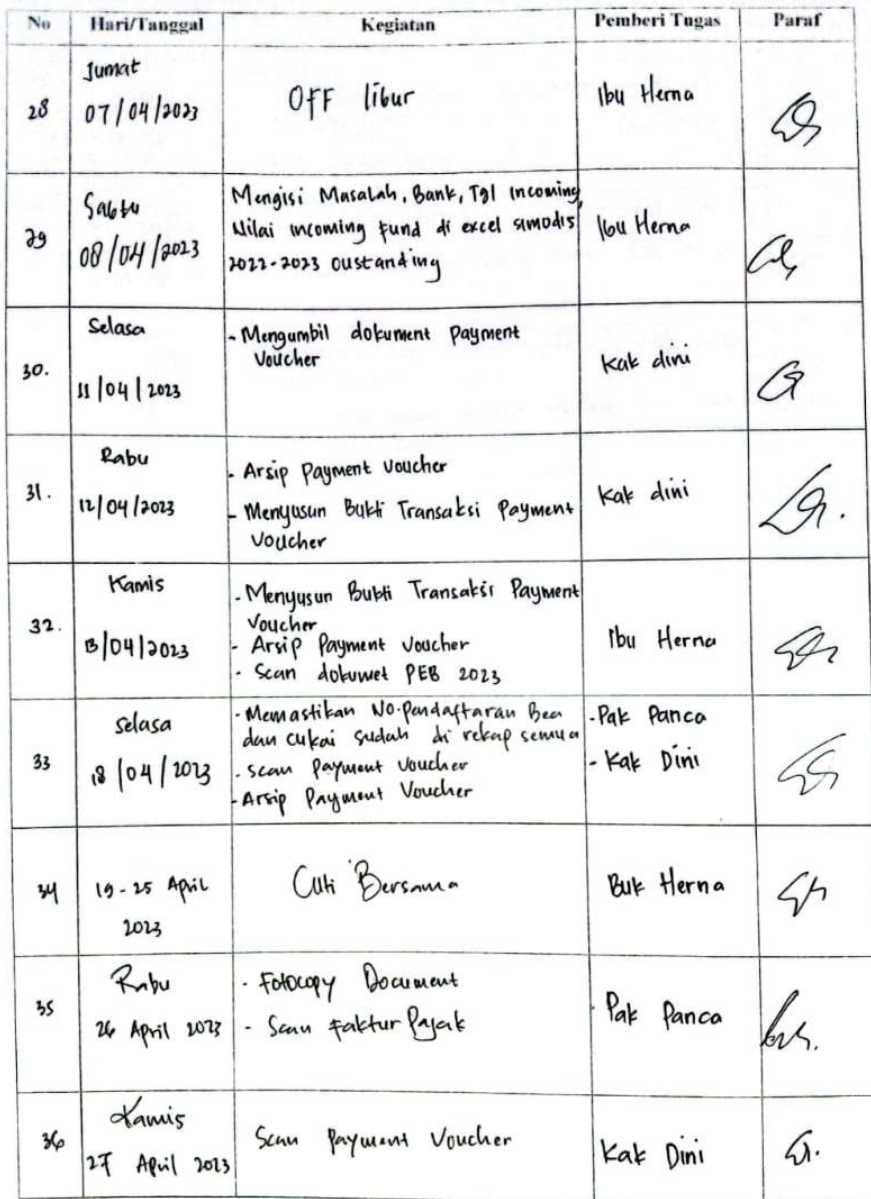 No Hari/Tanggal Kegiatan Pemberi Tugas Paraf
28
Jumat
07/04/2023
OFF libur
Ibu Herna
29
Sabtu
08/04/2023
Mengisi Masalah, Bank, Tgl incoming,
Nilai incoming fund di excel simodis
2022-2023 oustanding
Ibu Herna
30.
Selasa
11/04/2023
- Mengumbil dokument payment
Voucher
Kak dini
31.
Rabu
12/04/2023
- Arsip payment Voucher
- Menyusun Bukti Transaksi Payment
Voucher
Kak dini
32.
Kamis
13/04/2023
- Menyusun Bukti Transaksi Payment
Voucher
- Arsip Payment Voucher
- Scan dokumet PEB 2023
Ibu Herna
33
Selasa
18/04/2023
- Memastikan No.pendaftaran Bea
dan cukai sudah di rekap semua
- scan Payment Voucher
- Arsip Payment Voucher
- Pak Panca
- Kak Dini
34
19-25 April
2023
Cuti Bersama
Buk Herna
35
Rabu
26 April 2023
- Fotocopy Document
- Scan Faktur Pajak
Pak Panca
36
Kamis
27 April 2023
Scan Payment Voucher
Kak Dini